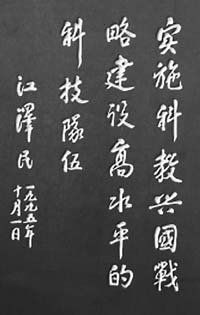 实施科教兴國戰
略建设高水平的
科技隊伍
江澤民
一九九五年
十月一日